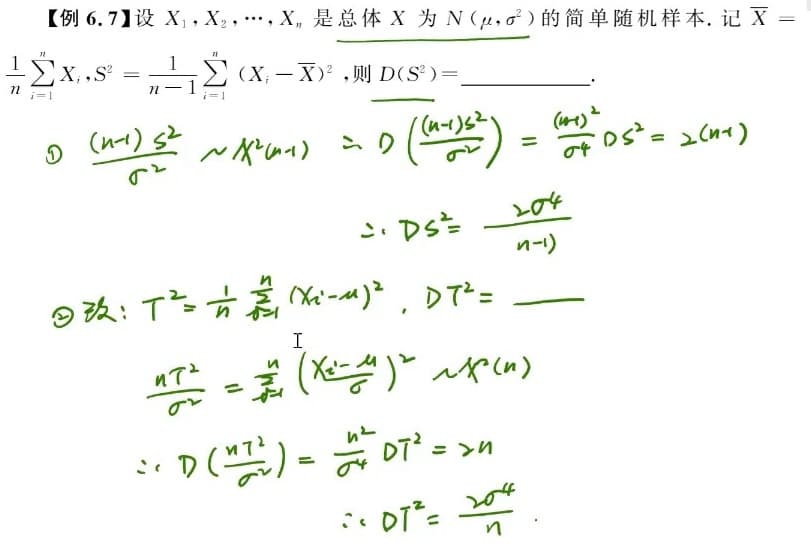 【例 6.7】设 X₁,X₂,…,Xₙ 是总体 X 为 N(μ,σ²)的简单随机样本.记 X̄ =
1/n ∑ᵢ₌₁ⁿ Xᵢ,S² = 1/(n−1) ∑ᵢ₌₁ⁿ (Xᵢ−X̄)²,则 D(S²)=________.
① (n-1)S²/σ² ~ χ²(n-1) ∴ D((n-1)S²/σ²) = (n-1)²/σ⁴ DS² = 2(n-1)
∴ DS² = 2σ⁴/n-1)
② 改: T² = 1/n ∑ᵢ₌₁ⁿ (Xᵢ-μ)², DT² = ____
nT²/σ² = ∑ᵢ₌₁ⁿ (Xᵢ-μ/σ)² ~ χ²(n)
∴ D(nT²/σ²) = n²/σ⁴ DT² = 2n
∴ DT² = 2σ⁴/n .